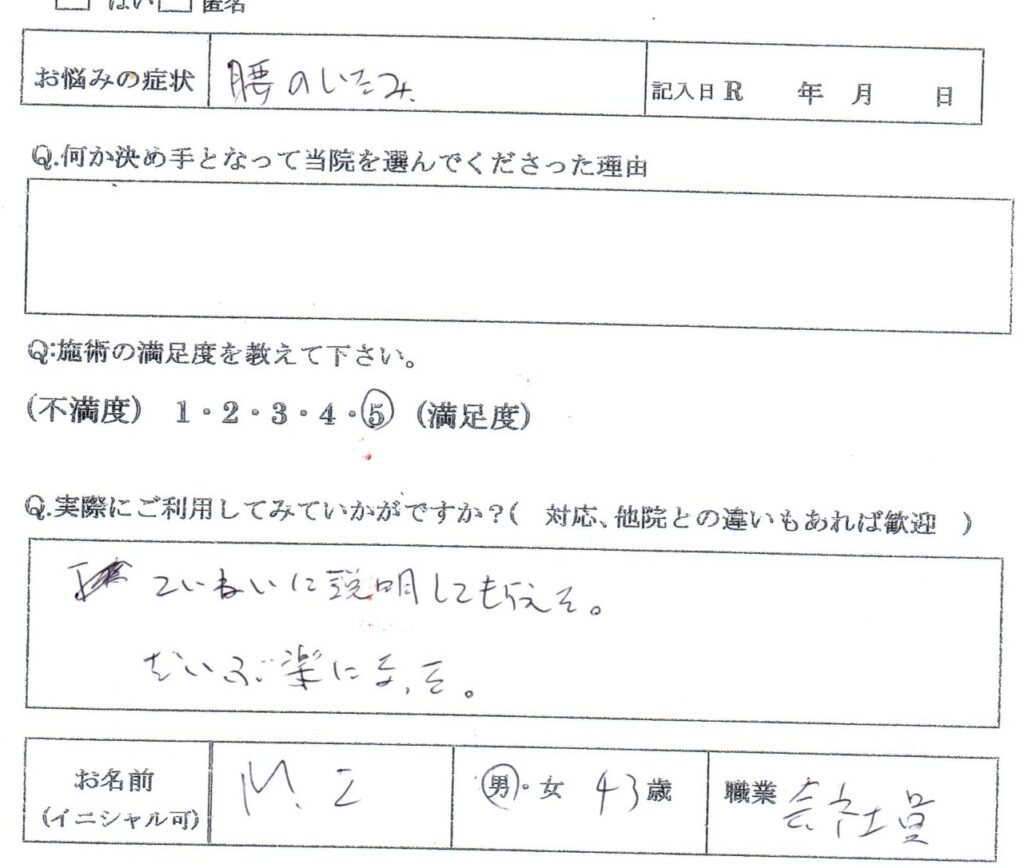 はい 匿名
お悩みの症状 腰のいたみ 記入日 R 年 月 日
Q.何か決め手となって当院を選んでくださった理由
Q:施術の満足度を教えて下さい。
(不満度) 1・2・3・4・5 (満足度)
Q.実際にご利用してみていかがですか?( 対応、他院との違いもあれば歓迎 )
ていねいに説明してもらえた。
だいぶ楽になった。
お名前 M. 男・女 43歳 職業 会社員
(イニシャル可)